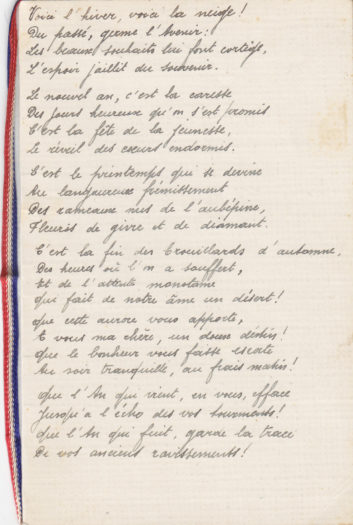 Voici l'hiver, voici la neige!
Du passé, germe l'Avenir:
Les beaux souhaits lui font cortège,
L'espoir jaillit du souvenir.
Le nouvel an, c'est la caresse
Des jours heureux qu'on s'est promis
C'est la fête de la jeunesse,
Le réveil des cœurs endormis.
C'est le printemps qui se devine
Au langoureux frémissement
Des rameaux nus de l'aubépine,
Fleuris de givre et de diamant.
C'est la fin des brouillards d'automne,
Des heures où l'on a souffert,
Et de l'attente monotone
Qui fait de notre âme un désert!
Que cette aurore vous apporte,
A vous ma chère, un doux destin!
Que le bonheur vous fasse escorte
Au soir tranquille, au frais matin!
Que l'An qui vient, en vous, efface
Jusqu'à l'écho des vos tourments!
Que l'An qui fuit, garde la trace
De vos anciens ravissements!